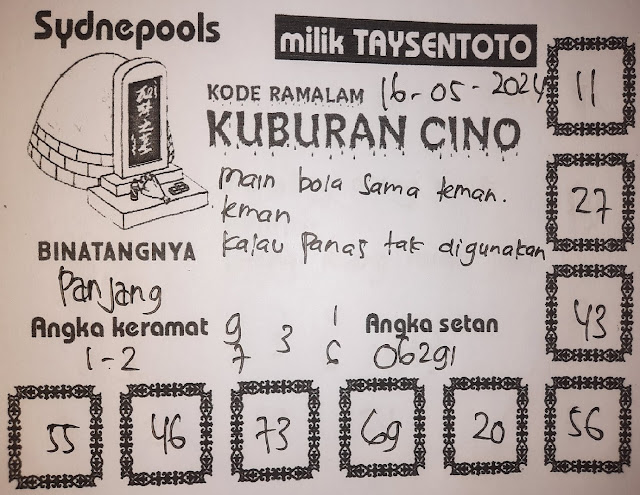 Sydnepools
milik TAYSENTOTO
KODE RAMALAM 16-05-2024
KUBURAN CINO
main bola sama teman.
teman
kalau panas tak digunakan
BINATANGNYA
Panjang
Angka keramat
1-2
9 1
3
7 6
Angka setan
06291
11
27
43
55 46 73 69 20 56